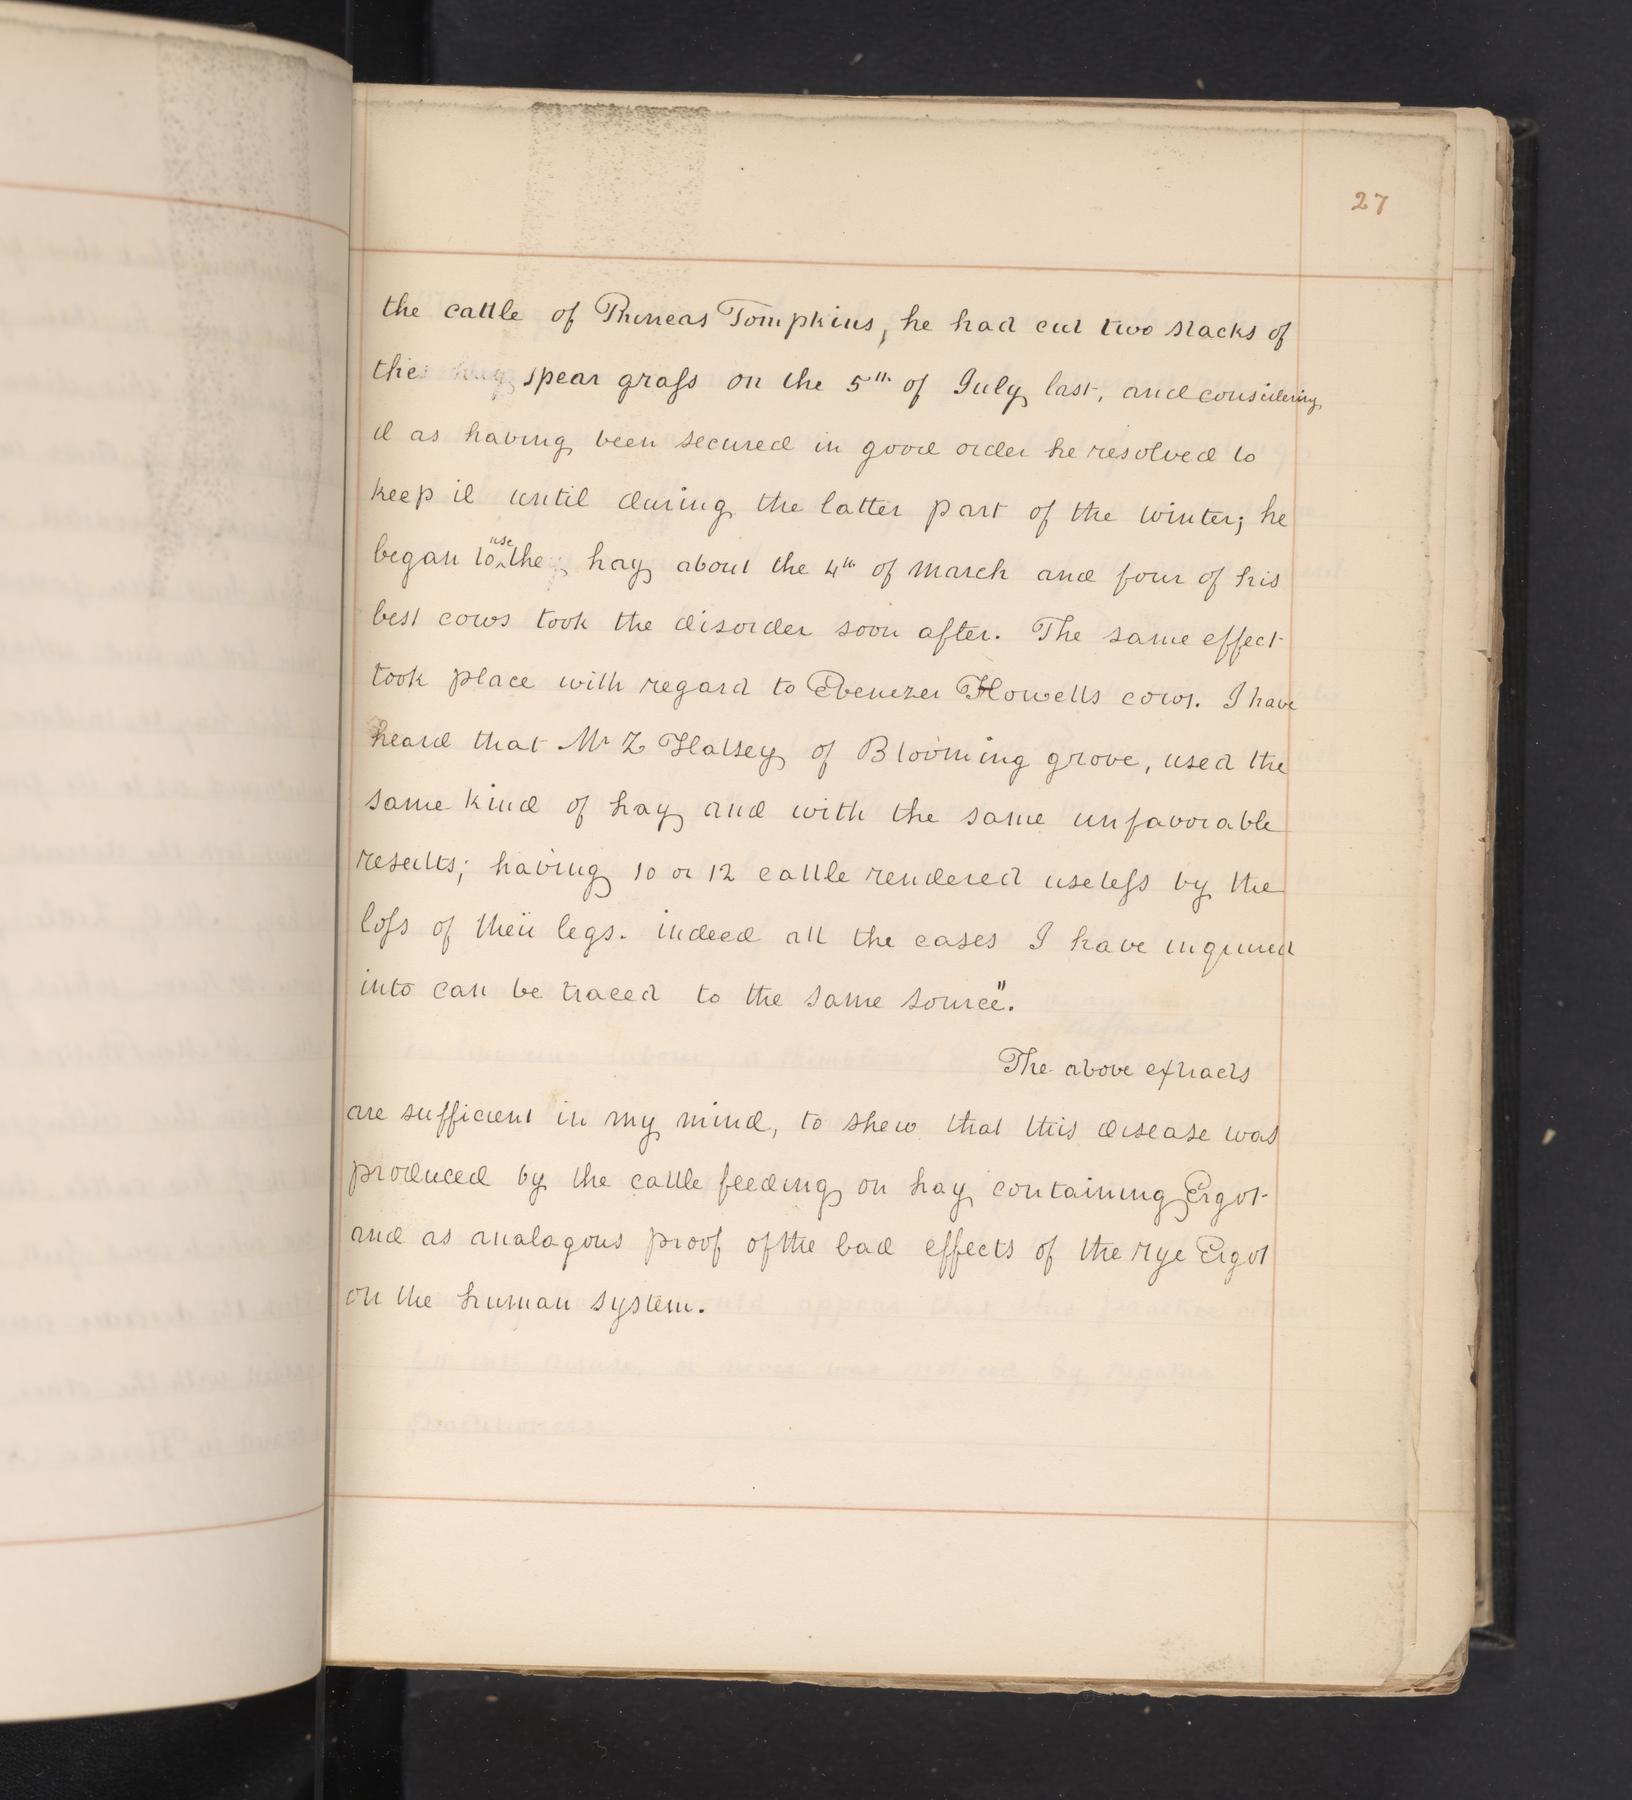 27
the cattle of Phineas Tompkins, he had cut two stacks of
the spear grass on the 5th of July last, and considering
it as having been secured in good order he resolved to
keep it until during the latter part of the winter; he
began to use the hay about the 4th of March and four of his
best cows took the disorder soon after. The same effect
took place with regard to Ebenezer Howells cows. I have
heard that Mr Z Halsey of Blooming grove, used the
same kind of hay and with the same unfavorable
results; having 10 or 12 cattle rendered useless by the
loss of their legs. indeed all the cases I have inquired
into can be traced to the same source".
The above extracts
are sufficient in my mind, to shew that this disease was
produced by the cattle feeding on hay containing Ergot
and as analagous proof of the bad effects of the rye Ergot
on the human system.